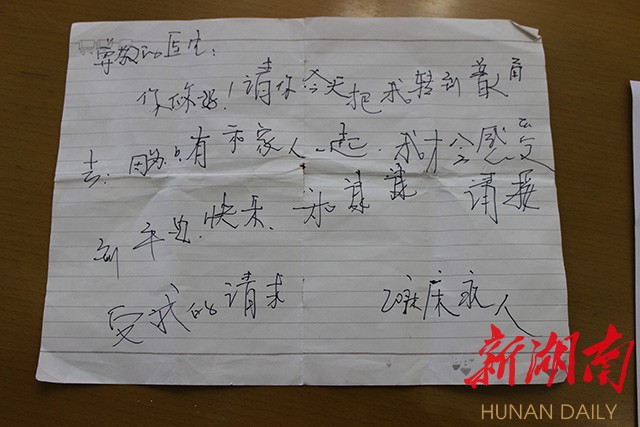 尊敬的医生:
你你好!请你今天把我转到普
去,因为只有和家人一起,我才会感受
到平,快乐,和 请接
受我的请求 床病人
新湖南
HUNAN DAILY